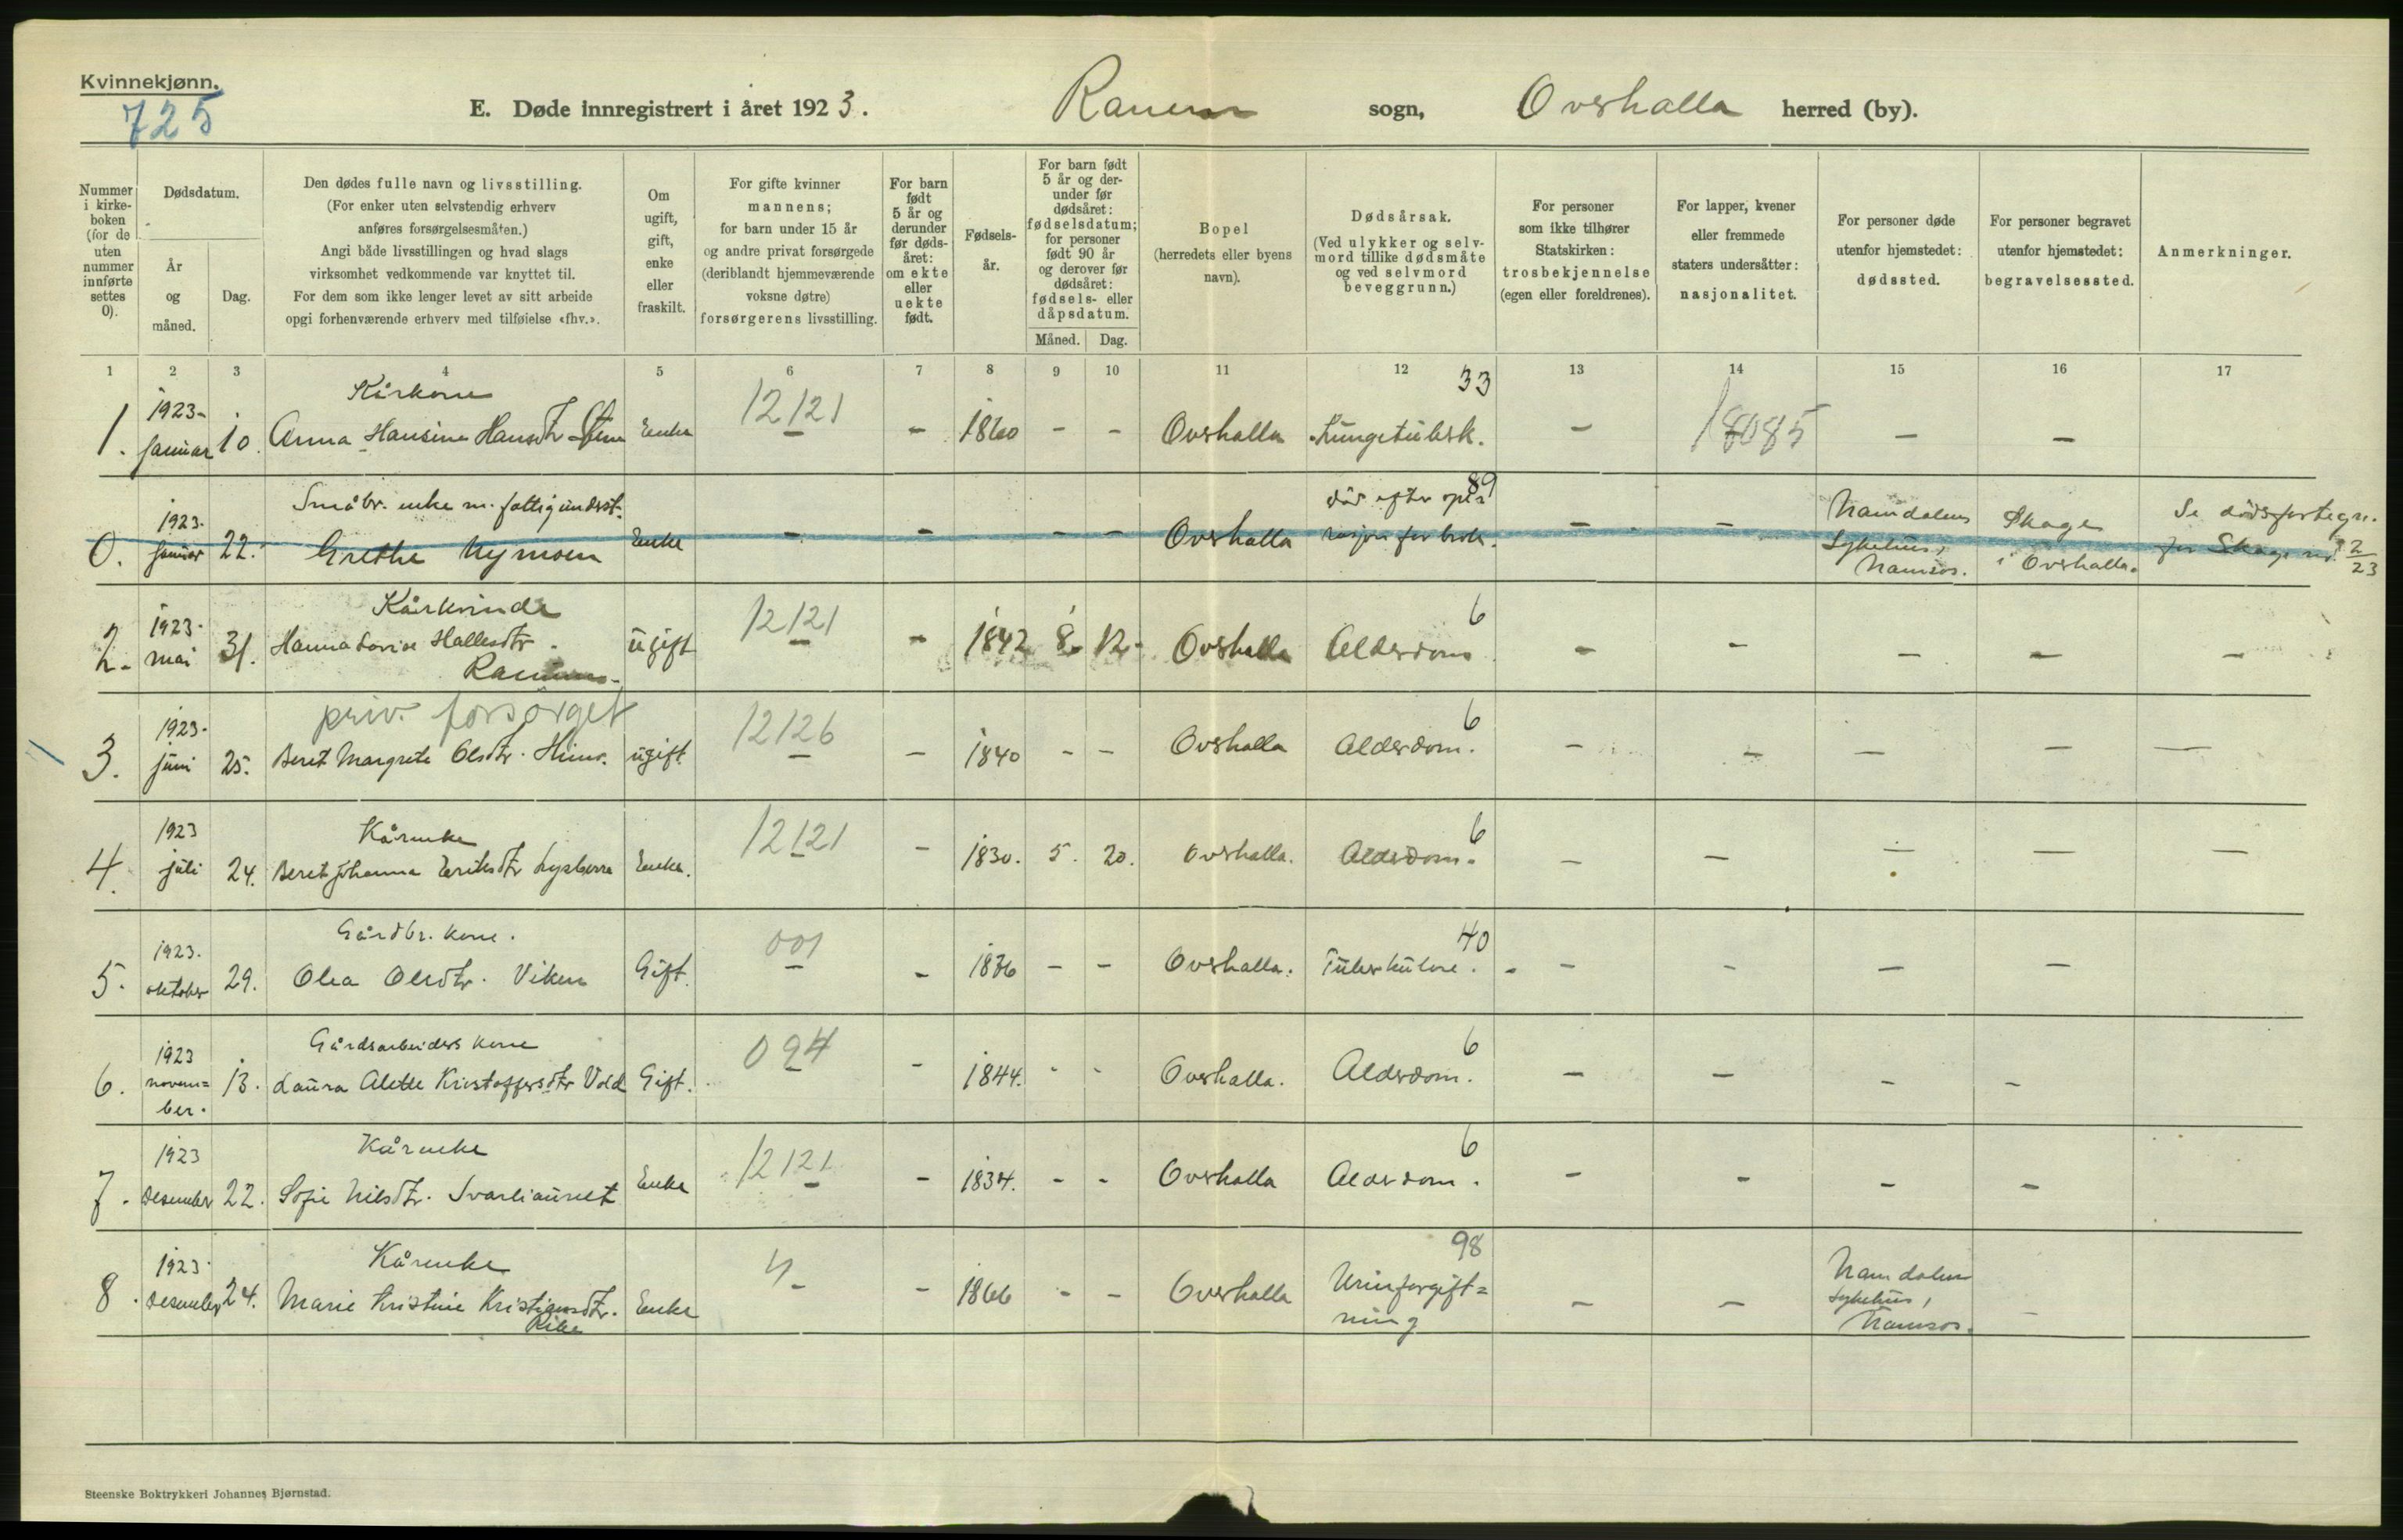 Kvinnekjønn.
725
E. Døde innregistrert i året 1923. Ranem sogn, Overhalla herred (by).
Nummer i kirke-boken (for de uten nummer innførte settes 0).
Dødsdatum.
År og måned.
Dag.
Den dødes fulle navn og livsstilling.
(For enker uten selvstendig erhverv
anføres forsørgelsesmåten.)
Angi både livsstillingen og hvad slags
virksomhet vedkommende var knyttet til.
For dem som ikke lenger levet av sitt arbeide
opgi forhenværende erhverv med tilføielse «fhv.».
Om ugift, gift, enke eller fraskilt.
For gifte kvinner
mannens;
for barn under 15 år
og andre privat forsørgede
(deriblandt hjemmeværende
voksne døtre)
forsørgerens livsstilling.
For barn født 5 år og derunder før døds-året: om ekte eller uekte født.
Fødsels-år.
For barn født 5 år og der-under før dødsåret: fødselsdatum; for personer født 90 år og derover før dødsåret: fødsels- eller dåpsdatum.
Måned. Dag.
Bopel
(herredets eller byens
navn).
Dødsårsak.
(Ved ulykker og selv-
mord tillike dødsmåte
og ved selvmord
beveggrunn.)
For personer
som ikke tilhører
Statskirken:
trosbekjennelse
(egen eller foreldrenes).
For lapper, kvener
eller fremmede
staters undersåtter:
nasjonalitet.
For personer døde
utenfor hjemstedet:
dødssted.
For personer begravet
utenfor hjemstedet:
begravelsessted.
Anmerkninger.
1 2 3 4 5 6 7 8 9 10 11 12 13 14 15 16 17
1923- Kårkone 12121 33
1. januar 10. Anna Hansine Hansdtr Enke - - 1860 - - Overhalla Lungetuberk. - 18085 - -
1923. Småbr. enke m. fattigunderst. død efter ope- 89 Namdalens Skage Se dødsfortegn.
0. januar 22. Grethe Nymoen Enke - - - - Overhalla rasjon for brok. - - Sykehus, Namsos. i Overhalla. for Skage nr. 2/23
1923. Kårkvinde 12121 6
2. mai 31. Hanna Lovise Hallesdtr. ugift - - 1842 8. 12. Overhalla Alderdom - - - - -
Ranem.
1923. priv. forsørget 12126 6
3. juni 25. Beret Margrete Olsdtr. Himo. ugift - - 1840 - - Overhalla Alderdom. - - - - -
1923 Kårenke 12121 6
4. juli 24. Beret Johanna Eriksdtr Lysberg Enke. - - 1830. 5. 20. Overhalla. Alderdom. - - - - -
1923. Gårdbr. kone. 001 40
5. oktober 29. Olea Olesdtr. Viken Gift. - - 1876 - - Overhalla. Tuberkulose. - - - -
1923 Gårdsarbeiders kone 024 6
6. novem=ber. 13. Laura Alette Kristoffersdtr Vold Gift. - - 1844. - - Overhalla. Alderdom. - - - -
1923 Kårenke 12121 6
7. Desember 22. Sofie Nilsdtr. Svarliaunet Enke - - 1834. - - Overhalla Alderdom. - - - -
1923. Kårenke 4 98 Namdalens
8. Desember 24. Marie Kristine Kristiansdtr. Enke - - 1866 - - Overhalla Urinforgift= - - Sykehus, -
ning Namsos.
Steenske Boktrykkeri Johannes Bjørnstad.